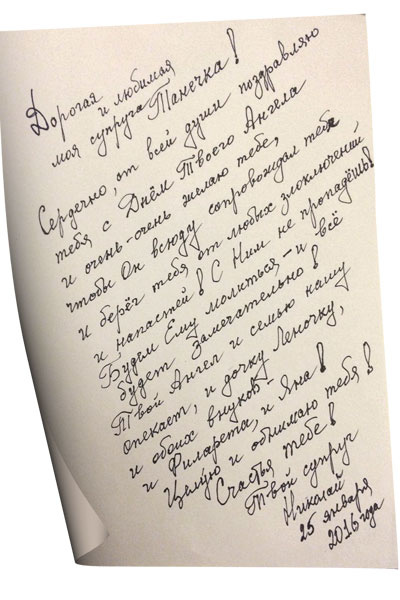 Дорогая
и любимая
моя супруга Танечка!
Сердечно, от всей души поздравляю
тебя с Днём Твоего Ангела
и очень-очень желаю тебе,
чтобы Он всюду сопровождал тебя
и берёг тебя от любых злоключений
и напастей! С Ним не пропадёшь!
Будем Ему молиться - и всё
будет замечательно!
Твой Ангел и семью нашу
опекает, и дочку Леночку,
и обоих внуков -
и Филарета, и Яна!
Целую и обнимаю тебя!
Счастья тебе!
Твой супруг
Николай
25 января
2016 года